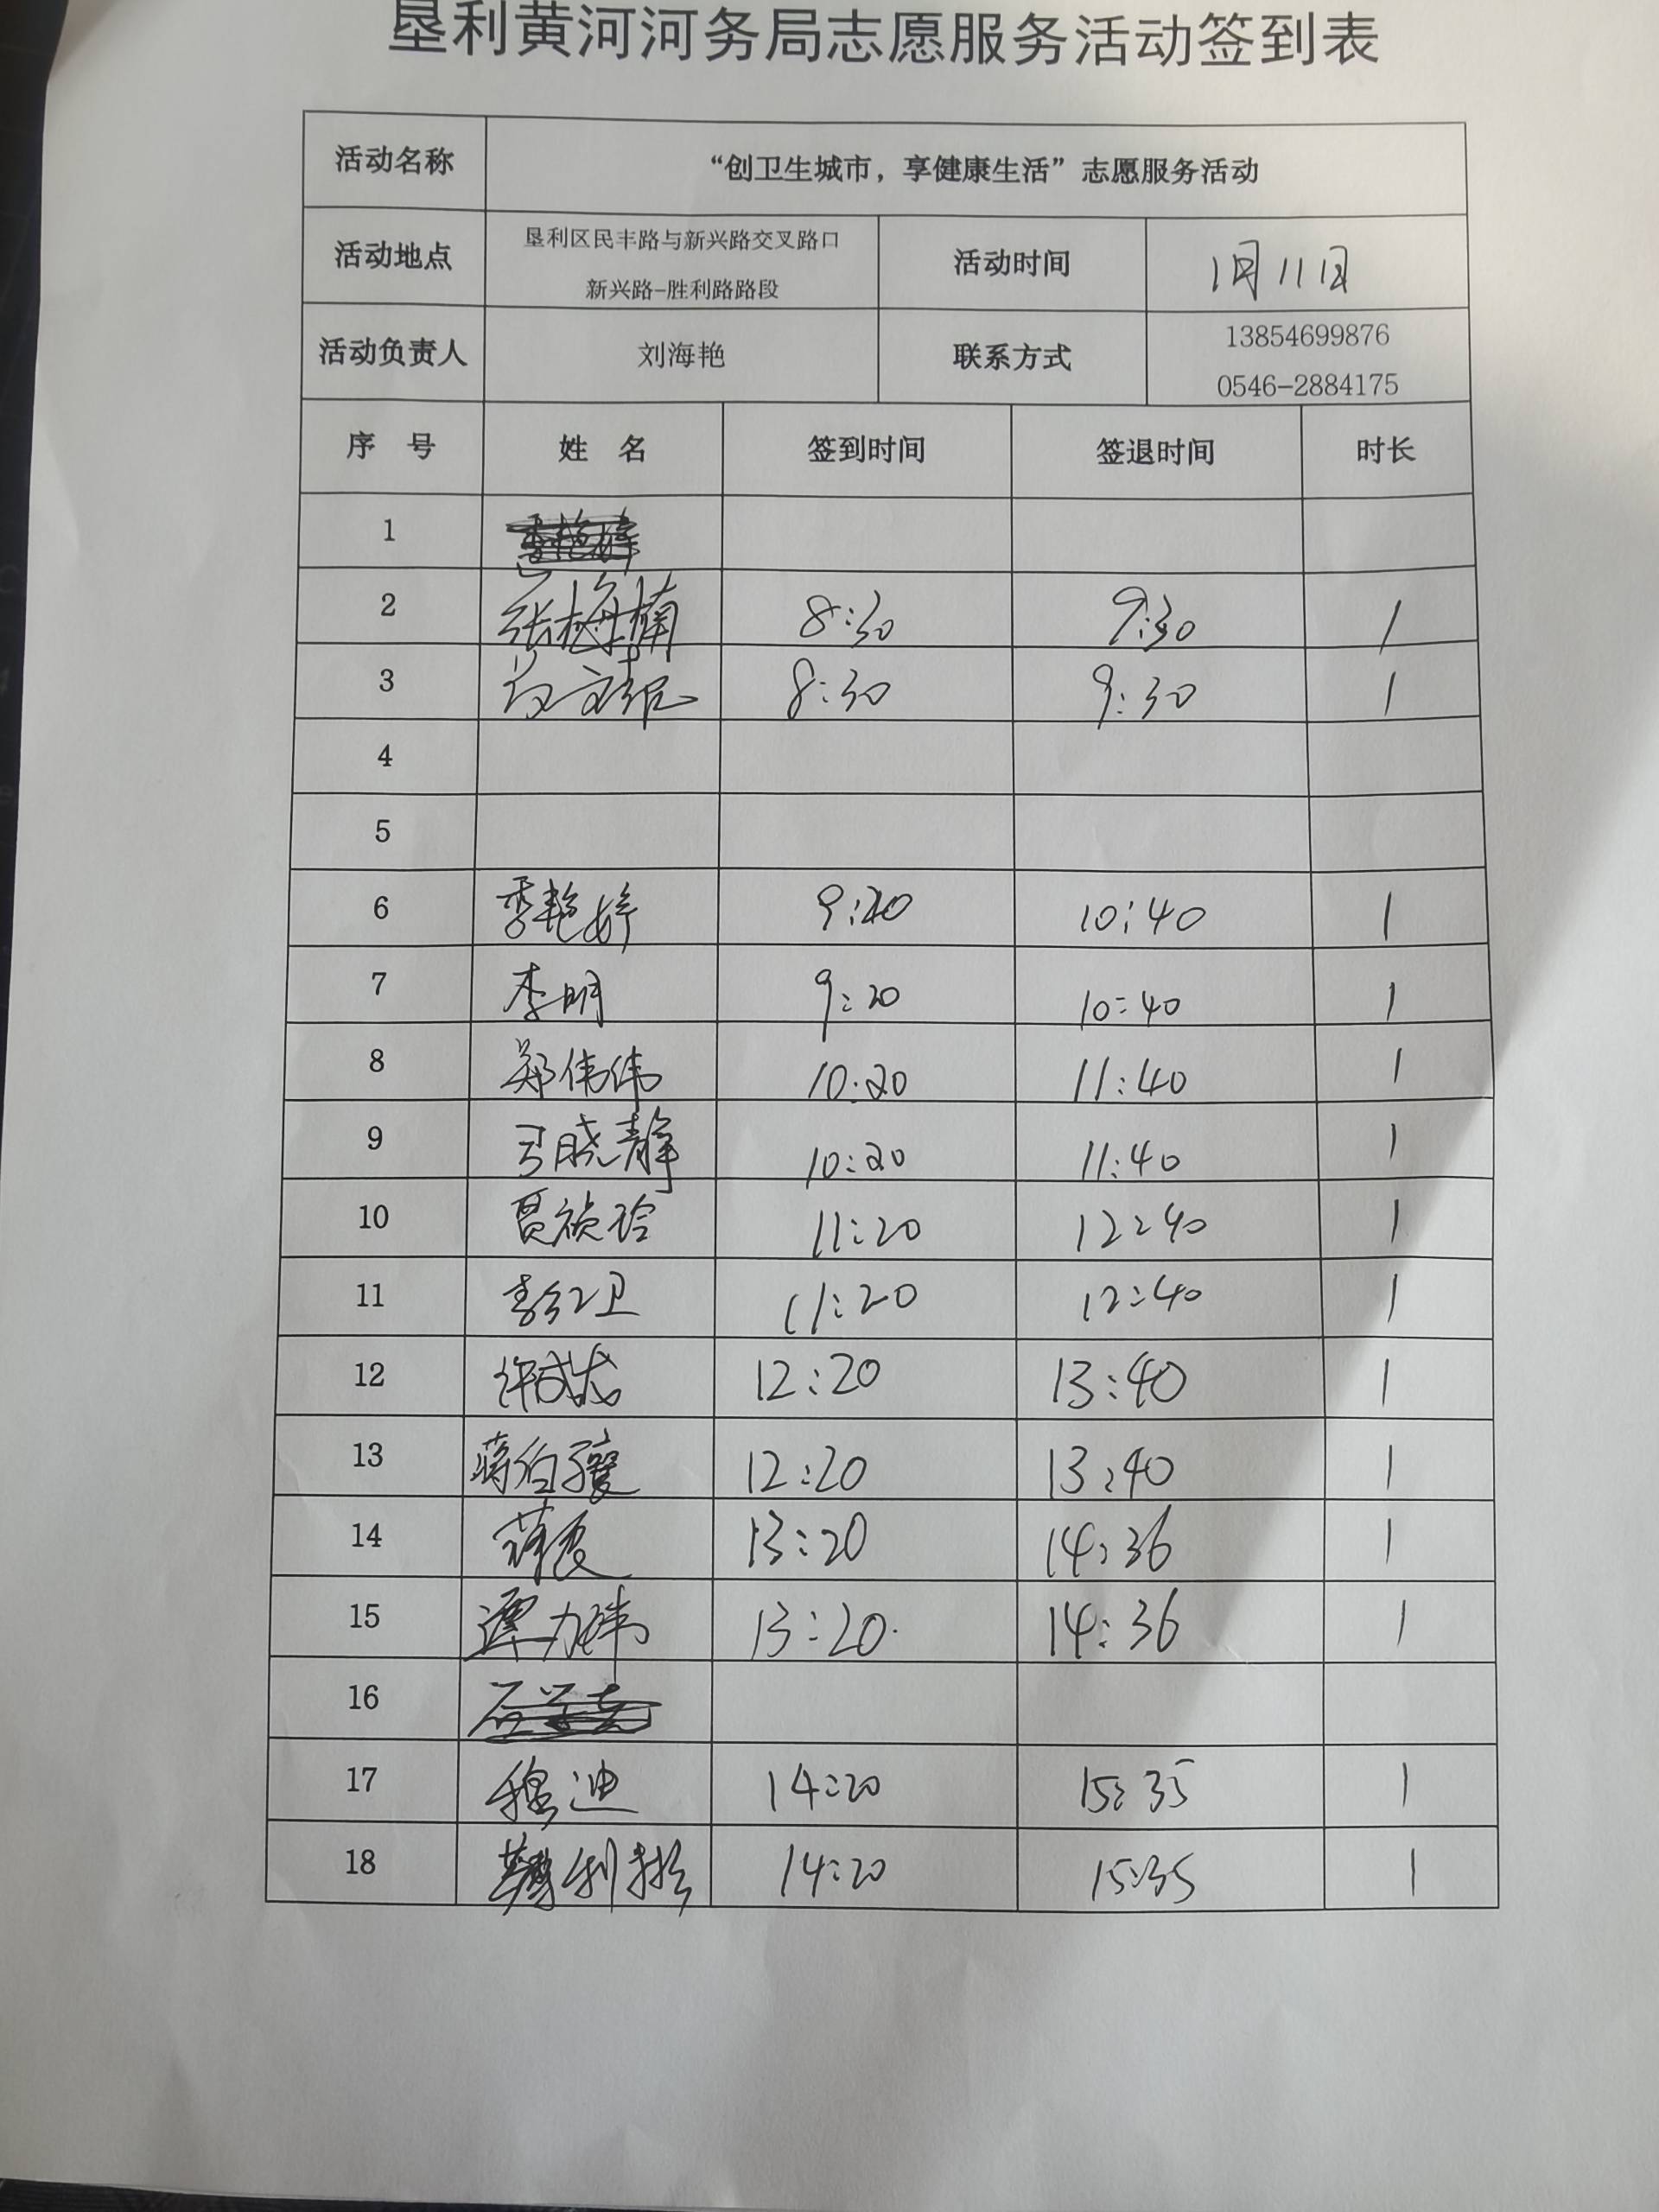 垦利黄河河务局志愿服务活动签到表
活动名称 “创卫生城市，享健康生活”志愿服务活动
活动地点 垦利区民丰路与新兴路交叉路口 活动时间 1月11日
新兴路-胜利路路段
活动负责人 刘海艳 联系方式 13854699876
0546-2884175
序 号 姓 名 签到时间 签退时间 时长
1
2 张梅楠 8:30 9:30 1
3 8:30 9:30 1
4
5
6 季艳婷 9:20 10:40 1
7 李明 9:20 10:40 1
8 郑伟伟 10:20 11:40 1
9 弓晓静 10:20 11:40 1
10 贾祯玲 11:20 12:40 1
11 李红卫 11:20 12:40 1
12 许成志 12:20 13:40 1
13 蒋伯骧 12:20 13:40 1
14 薛霞 13:20 14:36 1
15 谭力玮 13:20 14:36 1
16
17 穆迪 14:20 15:35 1
18 14:20 15:35 1